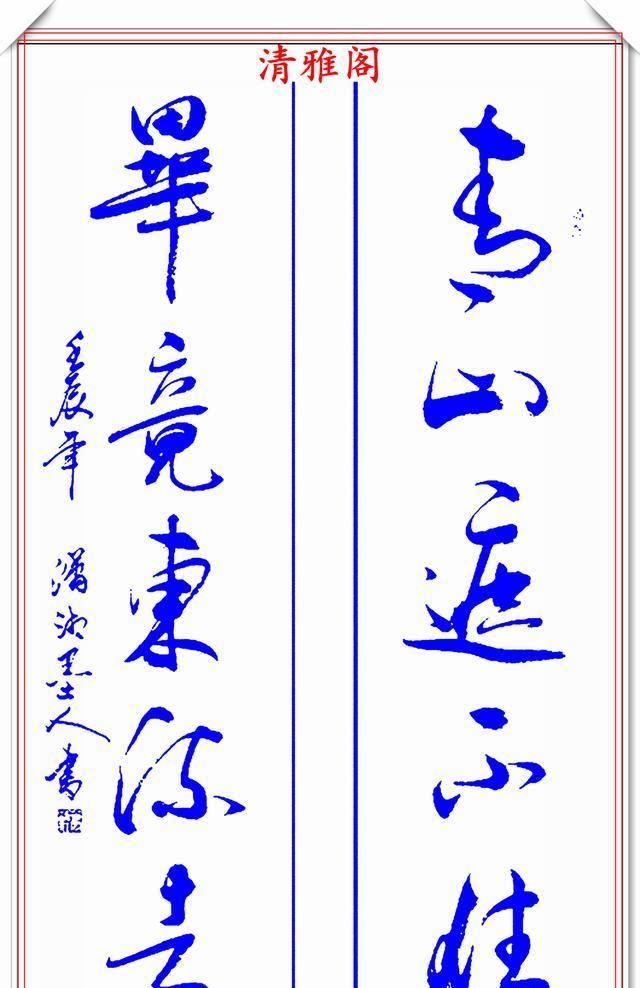 清雅阁
青山遮不住
畢竟東流去
壬辰年 瀟湘墨人書